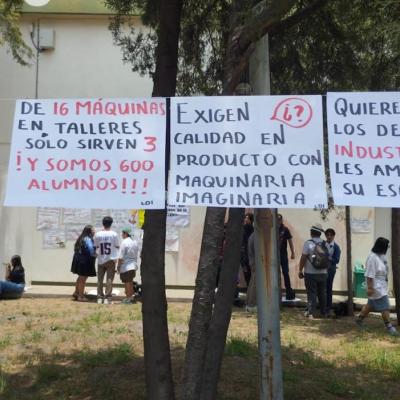 DE 16 MÁQUINAS
EN TALLERES
SOLO SIRVEN 3
¡Y SOMOS 600
ALUMNOS!!!
LDI
EXIGEN ¿?
CALIDAD EN
PRODUCTO CON
MAQUINARIA
IMAGINARIA
LDI
QUIERE
LOS DE
INDUST
LES AM
SU ES
15